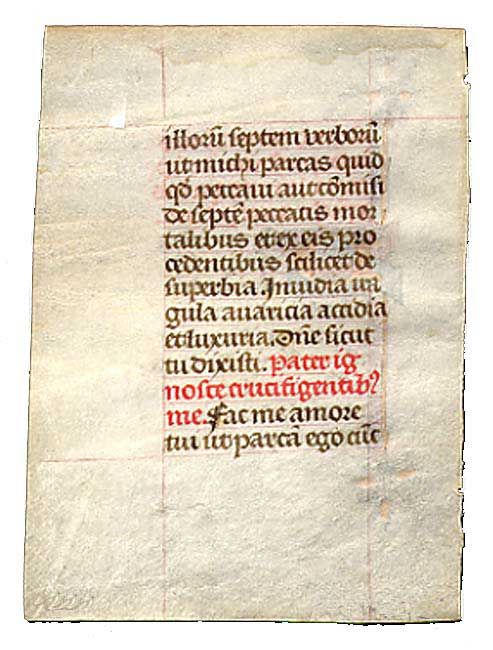 illorū septem verborū
ut michi parcas quid
qd̄ peccaui aut cōmisi
de septē peccatis mor
talibus et ex eis pro
cedentibus scilicet de
superbia Inuidia ira
gula auaricia accidia
et luxuria. Dn̄e sicut
tu dixisti. Pater ig
nosce crucifigentibꝰ
me. Fac me amore
tui ut parcā ego cūc